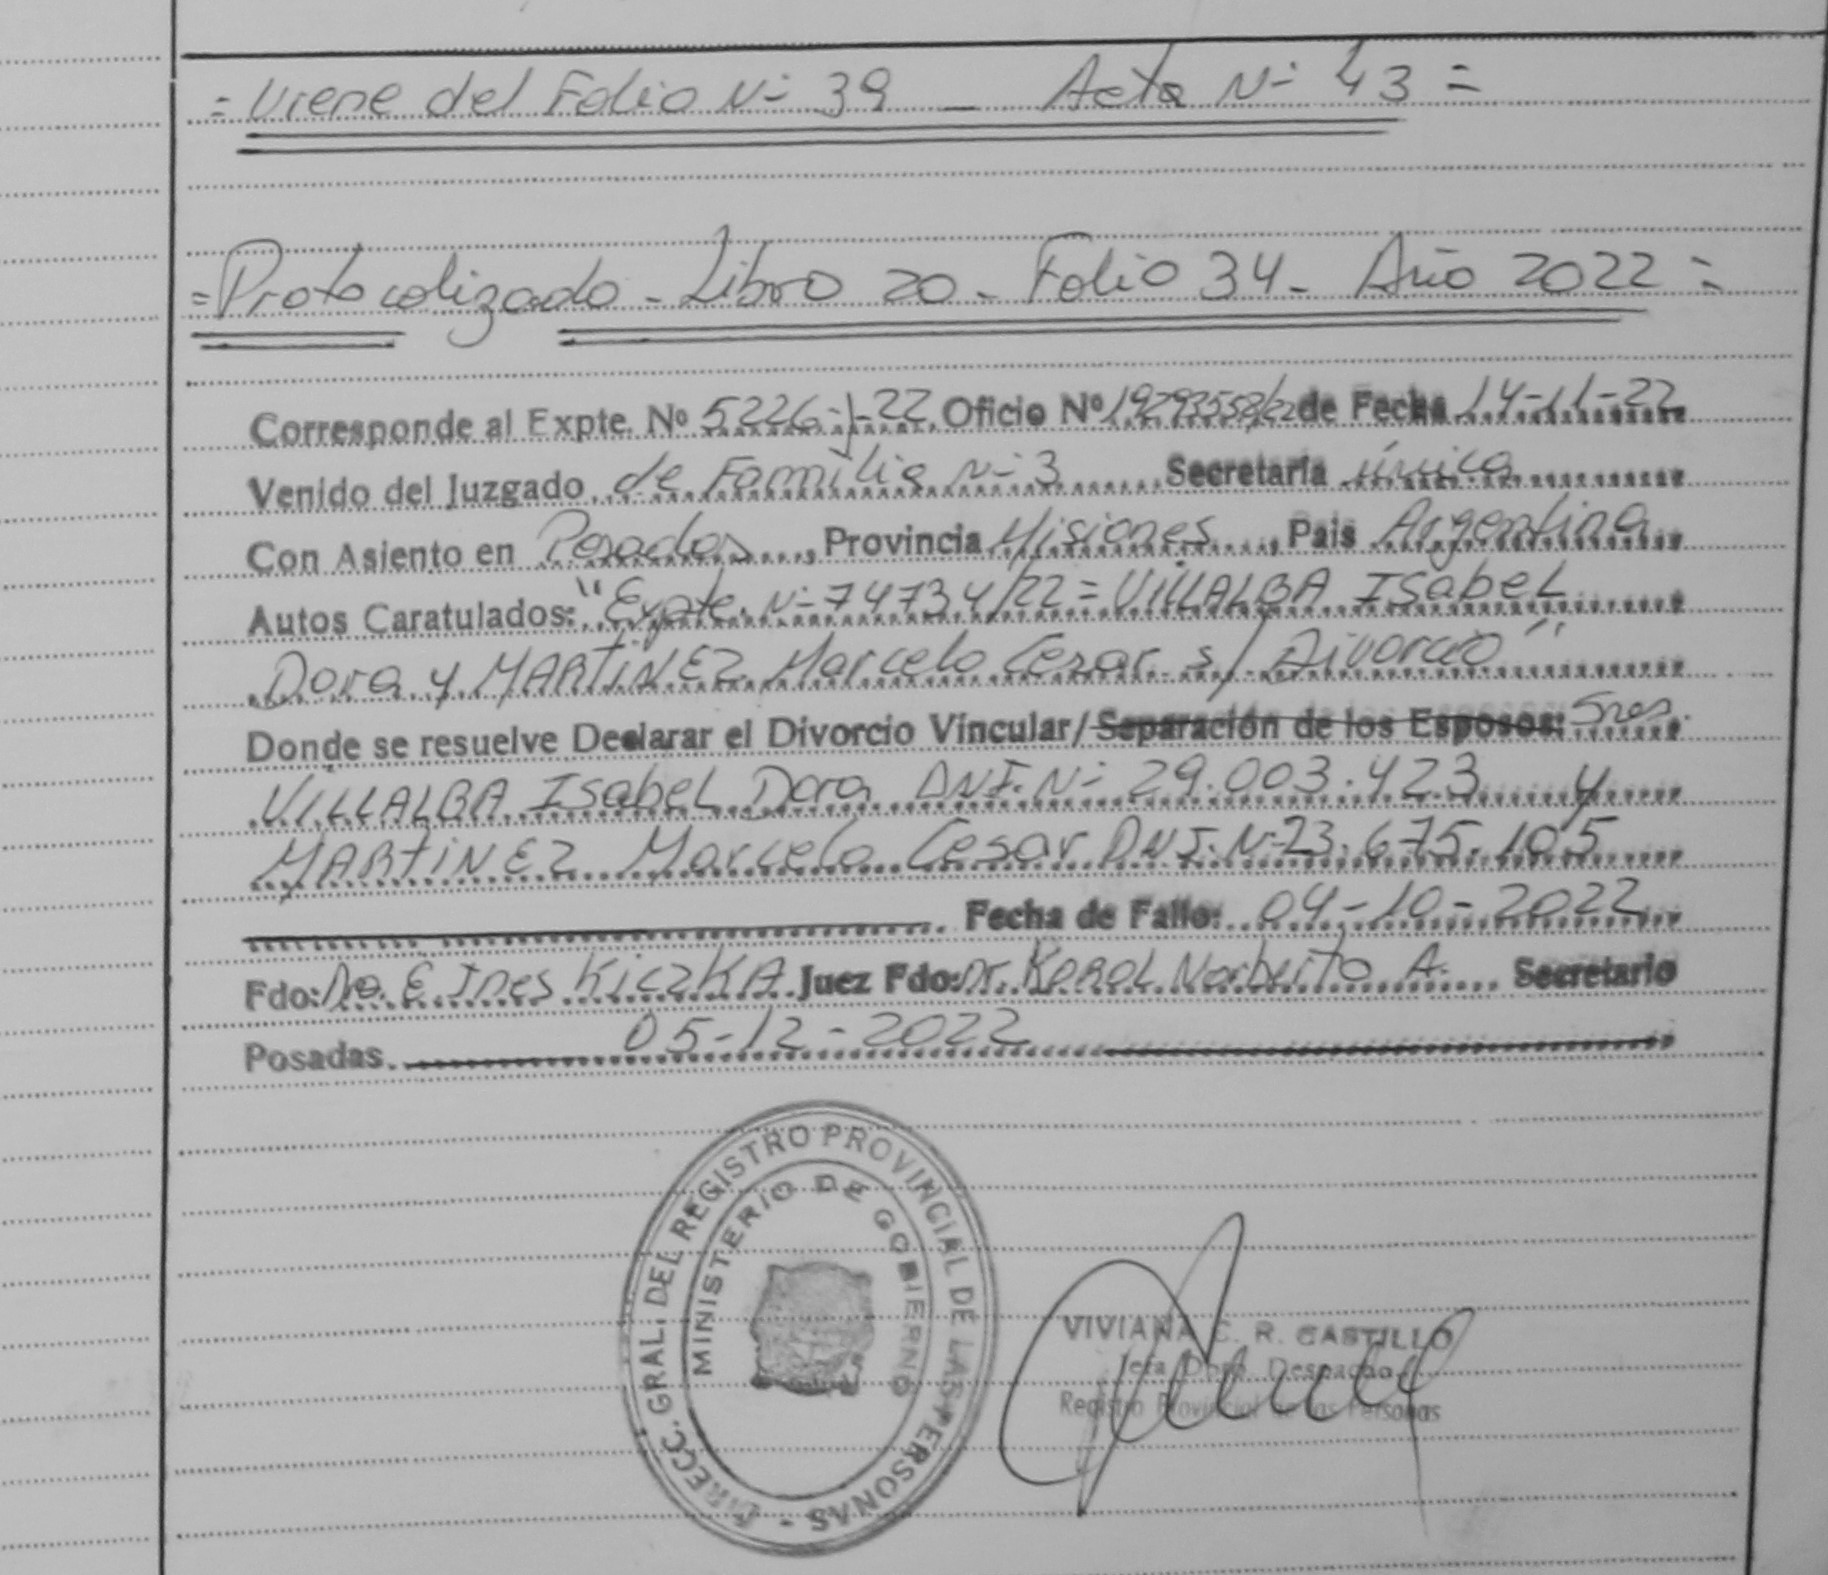 = Viene del Folio Nº 39 _ Acta Nº 43 =
= Protocolizado - Libro 20 - Folio 34 - Año 2022 =
Corresponde al Expte. Nº 5226-J-22 Oficio Nº 19293558/22 de Fecha 14-11-22
Venido del Juzgado de Familia Nº 3 Secretaría única
Con Asiento en Posadas, Provincia Misiones, Pais Argentina
Autos Caratulados: "Expte. Nº 74734/22 = VILLALBA ISabeL
Dora y MARTINEZ Marcelo Cesar s/ Divorcio"
Donde se resuelve Declarar el Divorcio Vincular/Separación de los Esposos: Sres.
VILLALBA ISabeL Dora DNI. Nº 29.003.423 y
MARTINEZ Marcelo Cesar DNI. Nº 23.675.105
Fecha de Fallo: 04-10-2022
Fdo: Dra. E Ines KiczKA Juez Fdo: Dr. Korol Norberto A. Secretario
Posadas. 05-12-2022
DIRECC. GRAL. DEL REGISTRO PROVINCIAL DE LAS PERSONAS -
MINISTERIO DE GOBIERNO
VIVIANA C. R. CASTILLO
Jefa Dpto. Despacho
Registro Provincial de las Personas